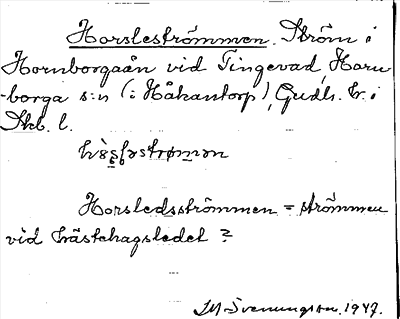 Horsleströmmen. Ström i
Hornborgaån vid Tingevad, Horn
-borga s:n (: Håkantorp), Gudh. hr. i
Skb. l.
Horsledsströmmen = strömmen
vid hästhagsledet ?
Svenungson. 1947.